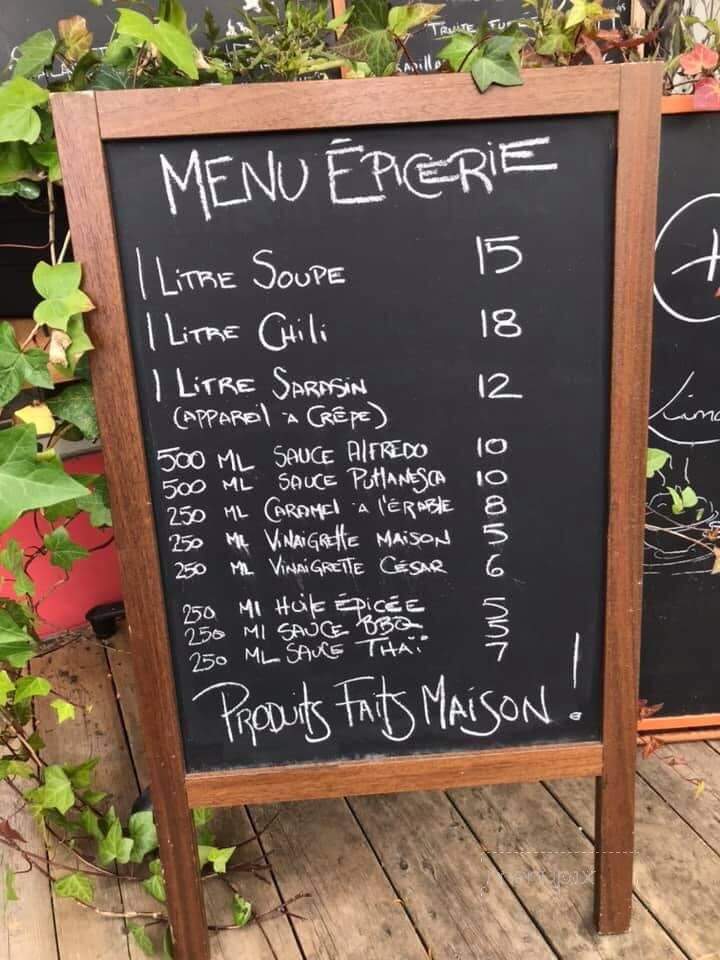 TRUITE
MENU ÉPICERIE
1 LITRE SOUPE 15
1 LITRE CHILI 18
1 LITRE SARASIN 12
(APPAREIL A CRÊPE)
500 ML SAUCE ALFREDO 10
500 ML SAUCE PUTTANESCA 10
250 ML CARAMEL A L'ÉRABLE 8
250 ML VINAIGRETTE MAISON 5
250 ML VINAIGRETTE CÉSAR 6
250 Ml HUILE ÉPICÉE 5
250 Ml SAUCE BBQ 5
250 ML SAUCE THAÏ 7
PRODUITS FAITS MAISON!